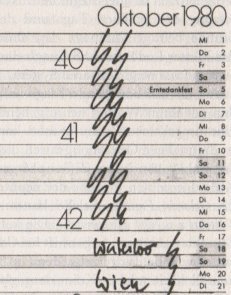 Oktober 1980
Mi 1
Do 2
40 Fr 3
Sa 4
Erntedankfest So 5
Mo 6
Di 7
41 Mi 8
Do 9
Fr 10
Sa 11
So 12
Mo 13
Di 14
42 Mi 15
Do 16
Fr 17
Waterloo Sa 18
So 19
Mo 20
Wien Di 21